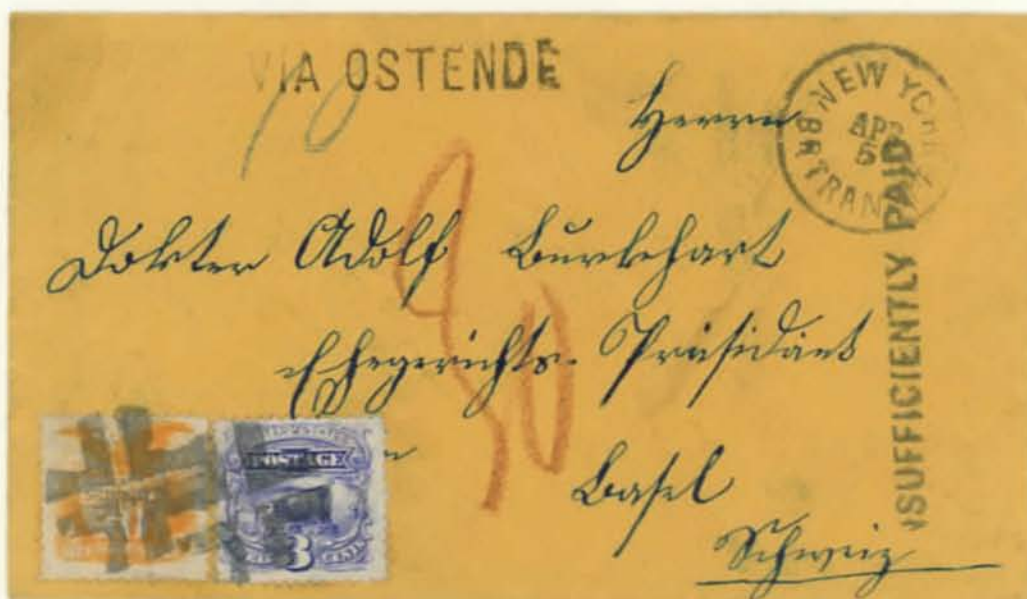 VIA OSTENDE
NEW YORK
APR
5
BR. TRANSIT
INSUFFICIENTLY PAID
Herrn
Doktor Adolf Burkhart
Ehegerichts-Präsident
in
Basel
Schweiz
10
80
POSTAGE
3